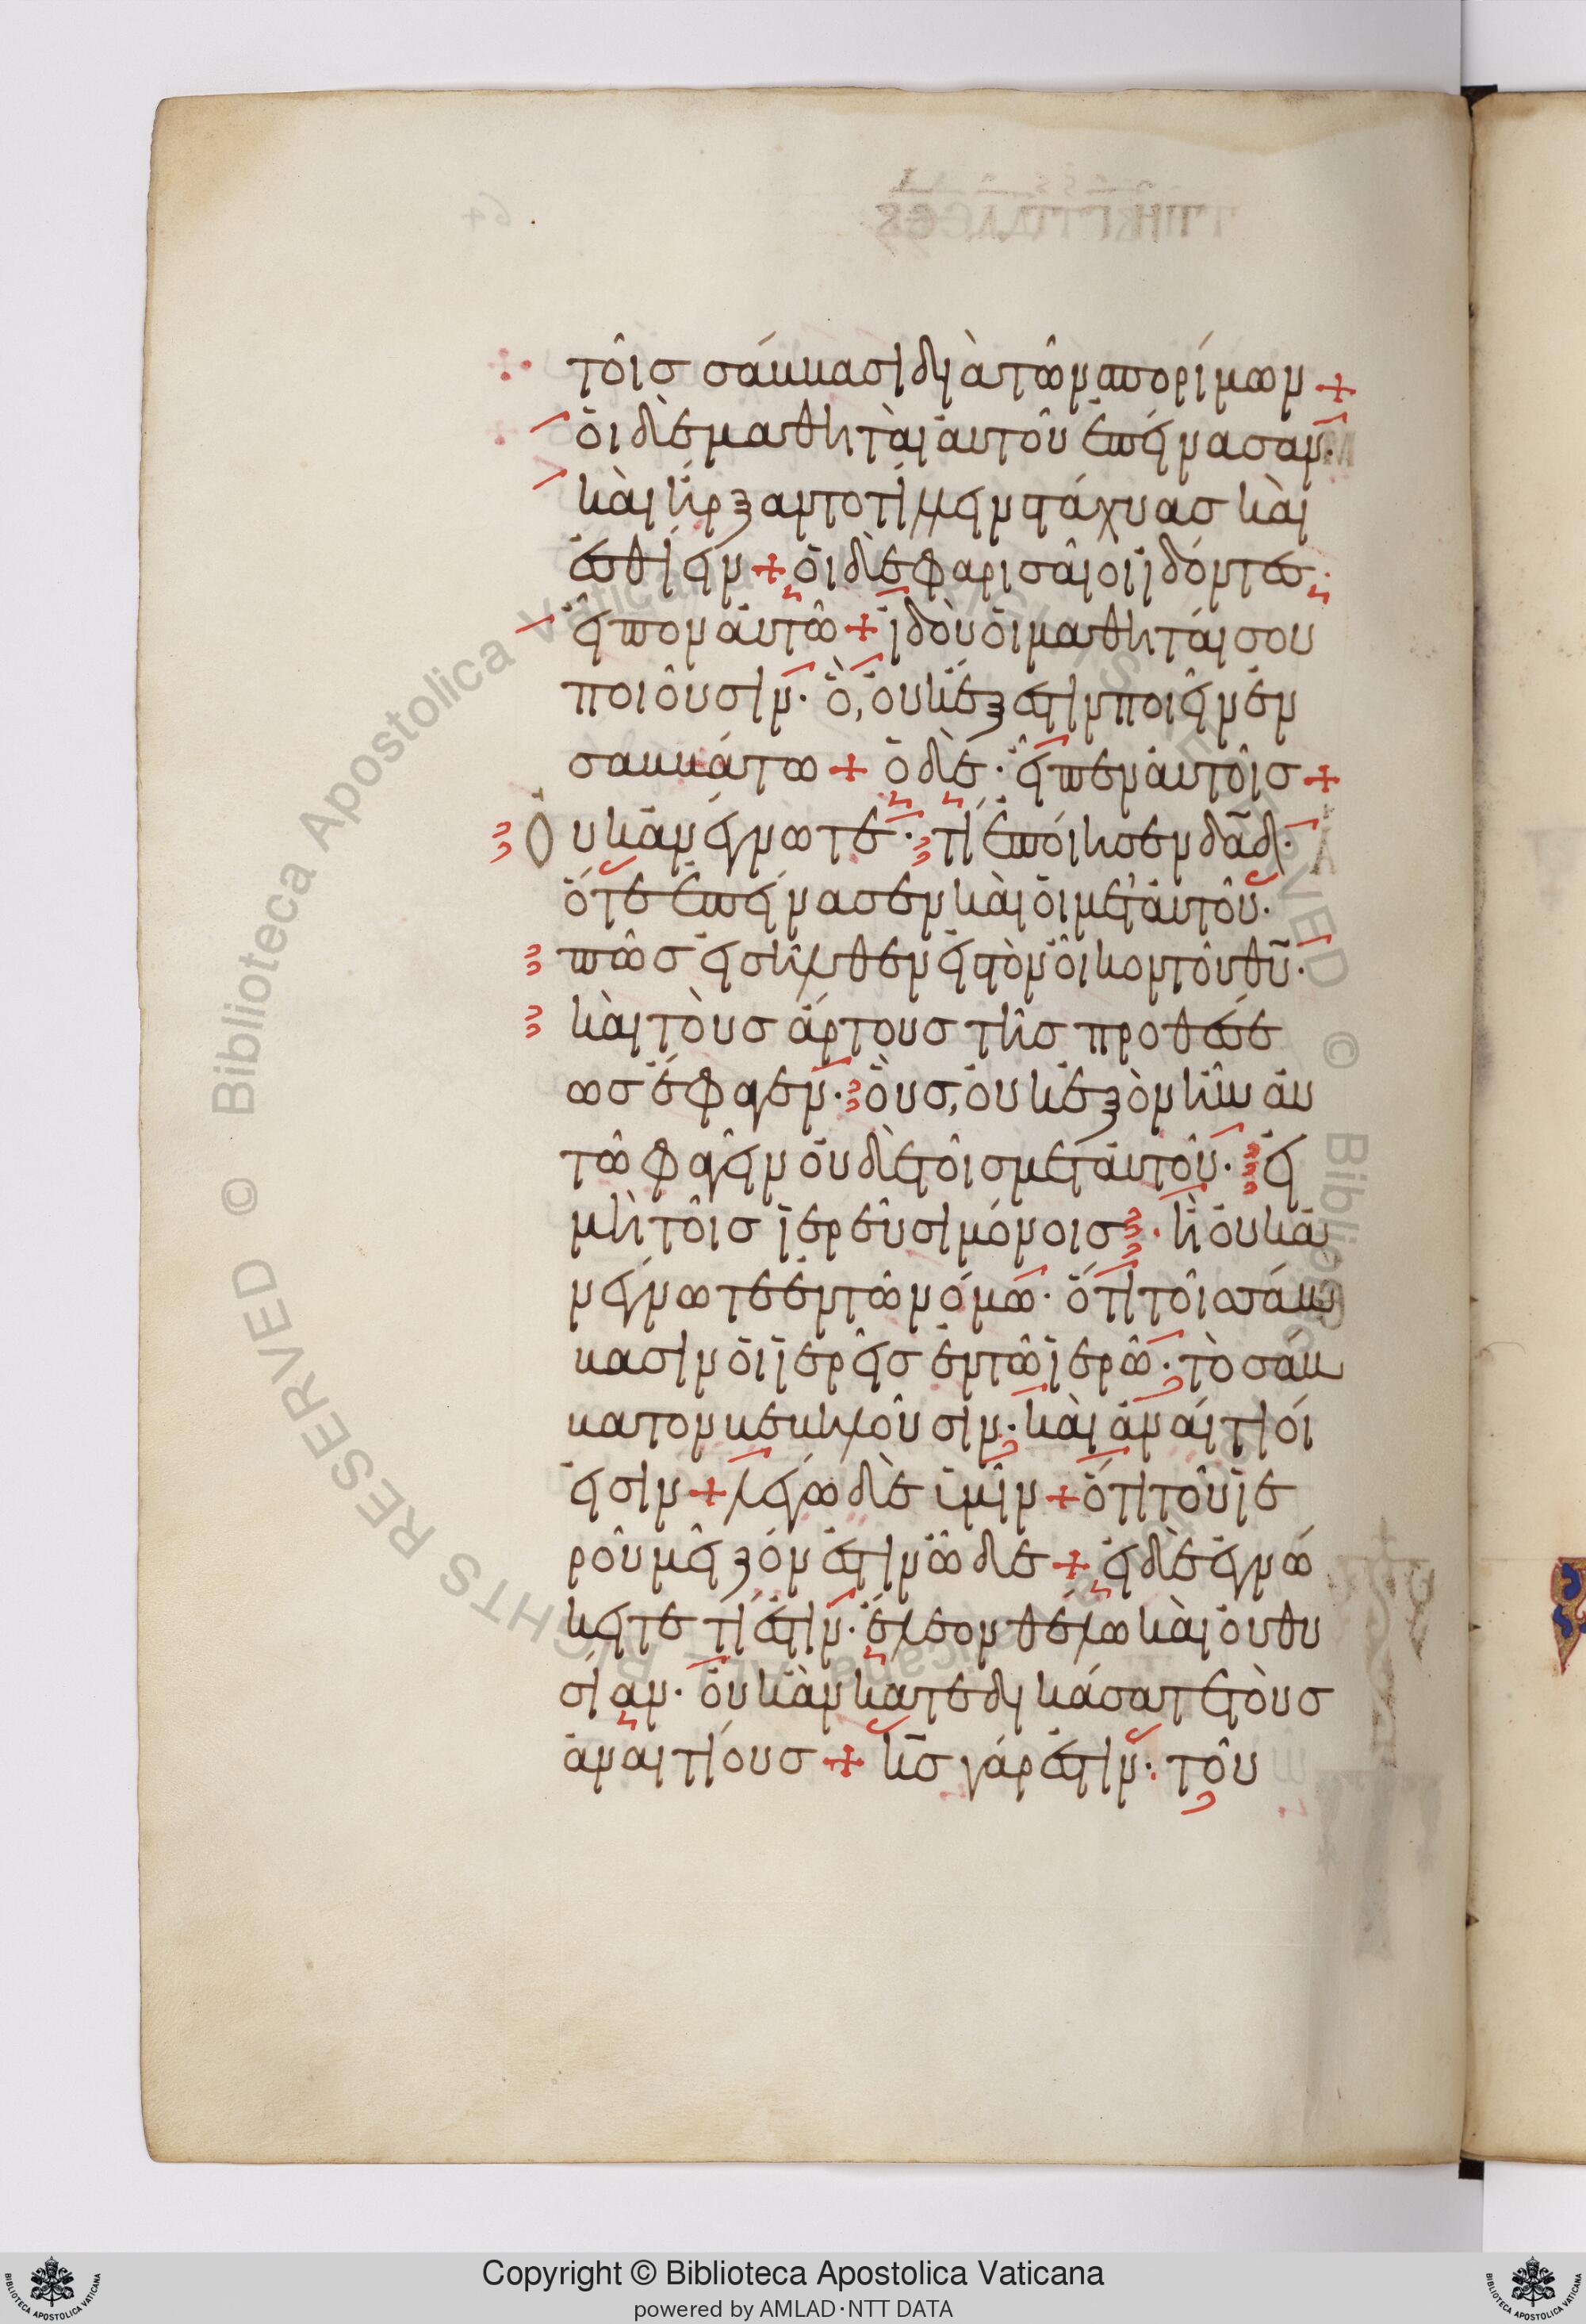 τοῖσ σάκκασι διὰ τῶν σπορίμων +
ὁι δὲ μαθηταὶ ἀυτοῦ ἐπείνασαν·
καὶ ἤρξαντο τίλλειν στάχυασ καὶ
ἐσθίειν + ὁι δὲ φαρισαῖοι ἰδόντεσ
εἶπον ἀυτῶ + ἰδοὺ ὁι μαθηταί σου
ποιοῦσιν· ὃ, ὀυκ ἔξεστιν ποιεῖν ἐν
σακκάτω + ὁ δὲ· εἶπεν ἀυτοῖσ +
Ὀυκ ἀνέγνωτε· τί ἐπόιησεν δᾱδ·
ὅτε ἐπείνασεν καὶ ὁι μετ' ἀυτοῦ·
πῶσ εἰσῆλθεν εἰσ τὸν ὄικον τοῦ θῡ·
καὶ τοὺσ ἄρτουσ τῆσ προθέσε
ωσ ἔφαγεν· ὃυσ, ὀυκ ἐξὸν ἦν ἀυ
τῶ φαγεῖν ὀυδὲ τοῖσ μετ ἀυτοῦ· εἰ
μὴ τοῖσ ἱερεῦσι μόνοισ· ἢ ὀυκ ἀ
νέγνωτε ἐν τῶ νόμω· ὅτι τοῖσ σάκ
κασιν ὁι ἱερεῖσ ἐν τῶ ἱερῶ· τὸ σάκ
κατον κεκηλοῦσιν· καὶ ἀναίτιοί
εἰσιν + λέγω δὲ ὑμῖν + ὅτι τοῦ ἱε
ροῦ μεῖζόν ἐστιν ὧδε + εἰ δὲ ἐγνώ
κειτε τί ἐστιν· ἔλεον θέλω καὶ ὀυ θυ
σίαν· ὀυκ ἂν κατεδικάσατε τοὺσ
ἀναιτίουσ + κ̄σ γάρ ἐστιν· τοῦ
Copyright © Biblioteca Apostolica Vaticana
powered by AMLAD·NTT DATA